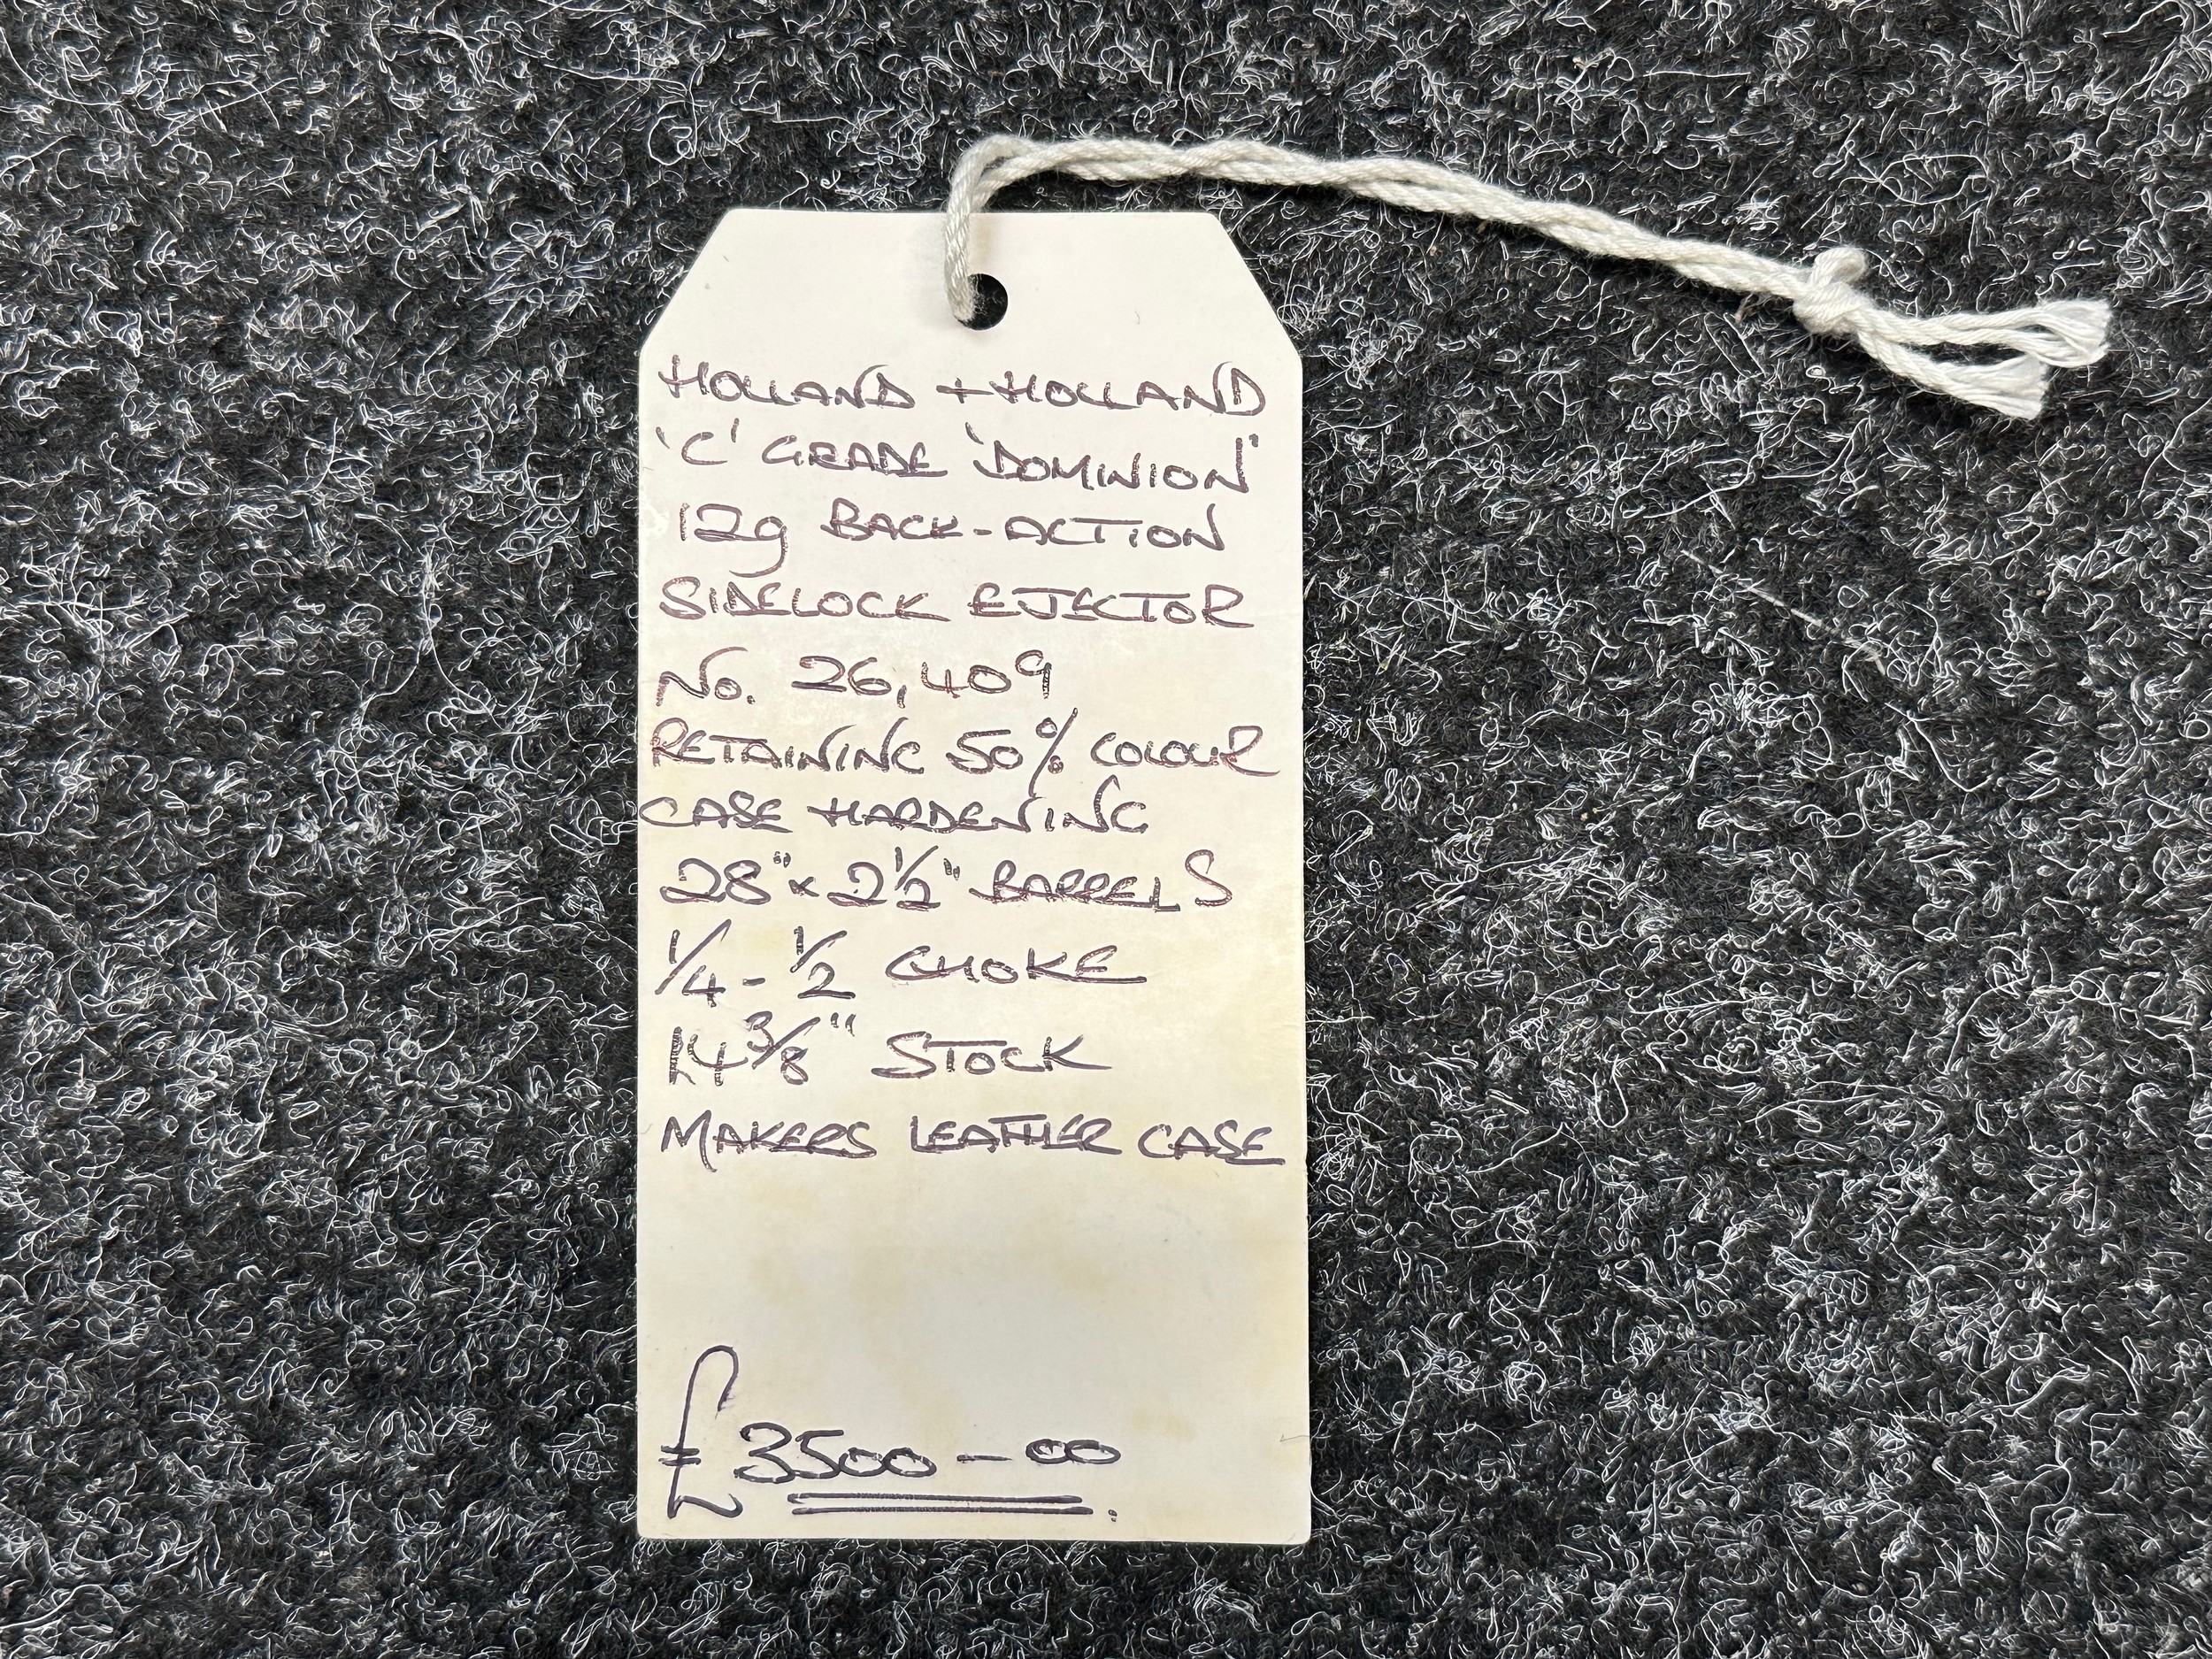 HOLLAND + HOLLAND
'C' GRADE 'DOMINION'
12g BACK-ACTION
SIDELOCK EJECTOR
No. 26,409
RETAINING 50% COLOUR
CASE HARDENING
28" x 2½" BARRELS
¼ - ½ CHOKE
14 ⅜" STOCK
MAKERS LEATHER CASE
£3500-00.